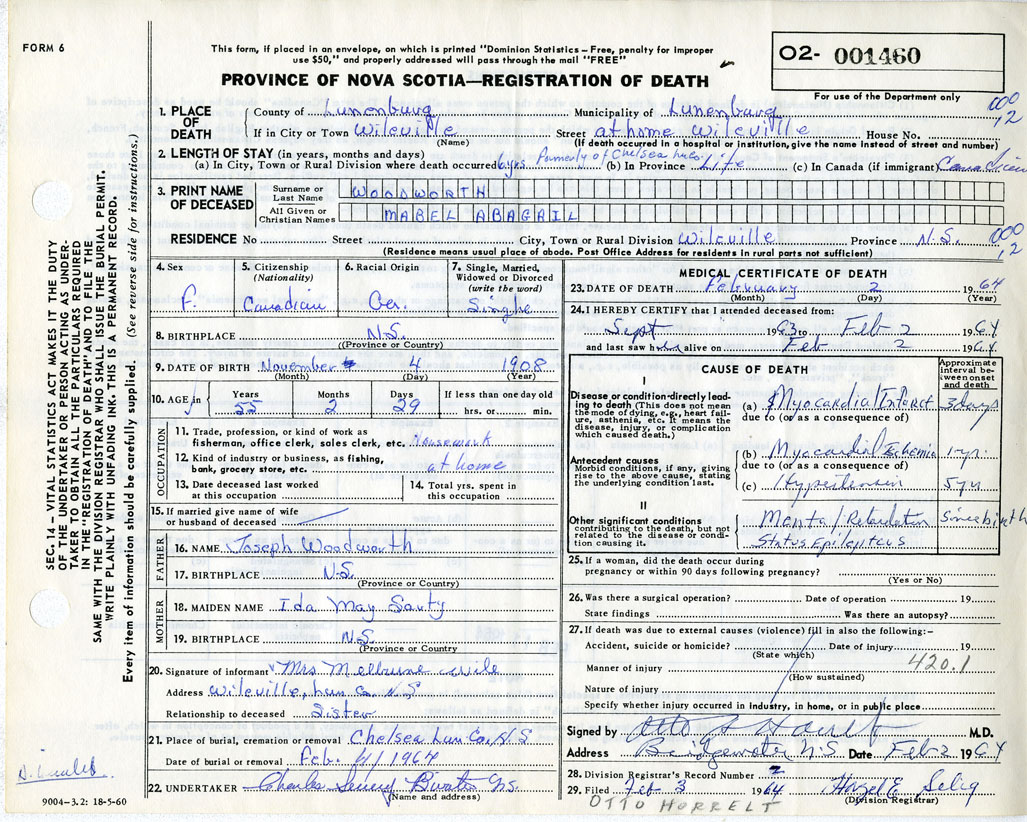 FORM 6
This form, if placed in an envelope, on which is printed "Dominion Statistics – Free, penalty for improper
use $50," and properly addressed will pass through the mail "FREE"
PROVINCE OF NOVA SCOTIA—REGISTRATION OF DEATH
02- 001460
For use of the Department only
SEC. 14 – VITAL STATISTICS ACT MAKES IT THE DUTY
OF THE UNDERTAKER OR PERSON ACTING AS UNDER-
TAKER TO OBTAIN ALL THE PARTICULARS REQUIRED
IN THE "REGISTRATION OF DEATH" AND TO FILE THE
SAME WITH THE DIVISION REGISTRAR WHO SHALL ISSUE THE BURIAL PERMIT.
WRITE PLAINLY WITH UNFADING INK. THIS IS A PERMANENT RECORD.
Every item of information should be carefully supplied. (See reverse side for instructions.)
1. PLACE OF DEATH County of Lunenburg Municipality of Lunenburg 000
12
If in City or Town Wileville Street at home Wileville House No.
(Name) (If death occurred in a hospital or institution, give the name instead of street and number)
2. LENGTH OF STAY (in years, months and days)
(a) In City, Town or Rural Division where death occurred 6 yrs. formerly of Chelsea (b) In Province Life (c) In Canada (if immigrant)
3. PRINT NAME OF DECEASED Surname or Last Name WOODWORTH
All Given or Christian Names MABEL ABAGAIL
RESIDENCE No Street City, Town or Rural Division Wileville Province N.S. 000
12
(Residence means usual place of abode. Post Office Address for residents in rural parts not sufficient)
4. Sex 5. Citizenship (Nationality) 6. Racial Origin 7. Single, Married, Widowed or Divorced (write the word)
F. Canadian Ger. Single
8. BIRTHPLACE N.S.
(Province or Country)
9. DATE OF BIRTH November 4 1908
(Month) (Day) (Year)
10. AGE in Years Months Days If less than one day old
55 2 29 hrs. or min.
OCCUPATION
11. Trade, profession, or kind of work as
fisherman, office clerk, sales clerk, etc. Housework
12. Kind of industry or business, as fishing,
bank, grocery store, etc. at home
13. Date deceased last worked at this occupation 14. Total yrs. spent in this occupation
15. If married give name of wife
or husband of deceased
FATHER
16. NAME Joseph Woodworth
17. BIRTHPLACE N.S.
(Province or Country)
MOTHER
18. MAIDEN NAME Ida May
19. BIRTHPLACE N.S.
(Province or Country
20. Signature of informant Mrs Melbune Wile
Address Wileville, Lun. Co. N.S
Relationship to deceased Sister
21. Place of burial, cremation or removal Chelsea Lun. Co. N.S
Date of burial or removal Feb. 4/1964
22. UNDERTAKER Charles N.S.
(Name and address)
9004–3.2: 18-5-60
MEDICAL CERTIFICATE OF DEATH
23. DATE OF DEATH February 2 1964
(Month) (Day) (Year)
24. I HEREBY CERTIFY that I attended deceased from:
Sept 1963 to Feb 2 1964
and last saw her alive on Feb 2 1964
CAUSE OF DEATH
Approximate interval between onset and death
I
Disease or condition directly lead-
ing to death (This does not mean
the mode of dying, e.g., heart fail-
ure, asthenia, etc. It means the
disease, injury, or complication
which caused death.)
(a) Myocardial Infarct 3 days
due to (or as a consequence of)
Antecedent causes
Morbid conditions, if any, giving
rise to the above cause, stating
the underlying condition last.
(b) Myocardial Ischemia 1 yr.
due to (or as a consequence of)
(c) Hypertension 5 yr
II
Other significant conditions
contributing to the death, but not
related to the disease or condi-
tion causing it.
Mental Retardation Since birth
Status Epilepticus
25. If a woman, did the death occur during
pregnancy or within 90 days following pregnancy?
(Yes or No)
26. Was there a surgical operation? Date of operation 19
State findings Was there an autopsy?
27. If death was due to external causes (violence) fill in also the following:–
Accident, suicide or homicide? Date of injury 19
(State which) 420.1
Manner of injury
(How sustained)
Nature of injury
Specify whether injury occurred in industry, in home, or in public place
Signed by Otto H Horrelt M.D.
Address Bridgewater N.S Date Feb 2 1964
28. Division Registrar's Record Number 2
29. Filed Feb 3 1964 Hazel E. Selig
(Division Registrar)
OTTO HORRELT